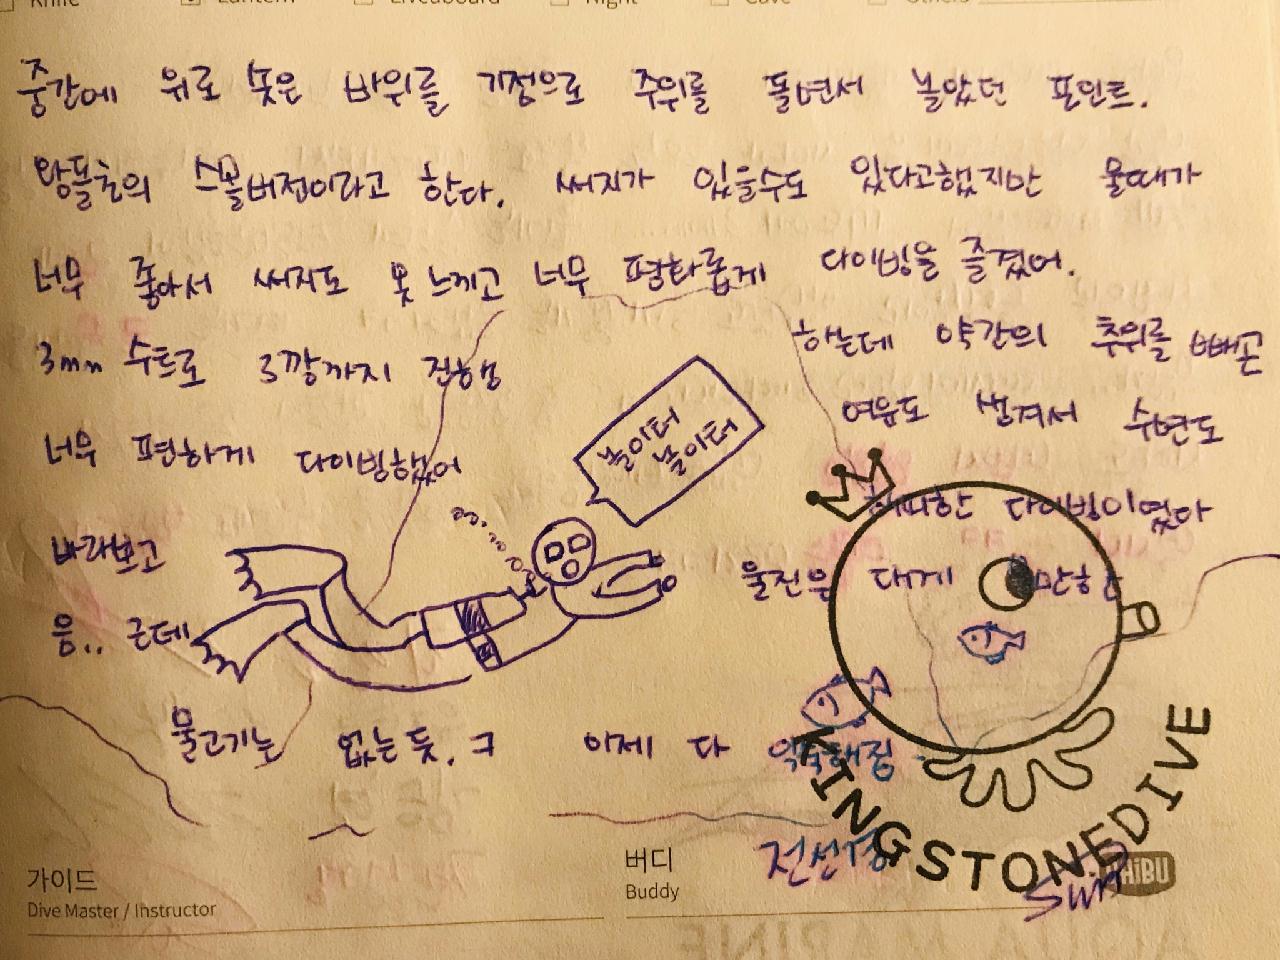 Knife Lantern Liveaboard Night Cave Others
중간에 위로 솟은 바위를 기점으로 주위를 돌면서 놀았던 포인트.
왕돌초의 스몰버전이라고 한다. 써지가 있을수도 있다고했지만 물때가
너무 좋아서 써지도 못느끼고 너무 평화롭게 다이빙을 즐겼어.
3mm 수트로 3깡까지 진행 하는데 약간의 추위를 빼곤
너무 편하게 다이빙했어 여유도 생겨서 수면도
놀이터
놀이터
바라보고 다이빙이었아
음.. 근데 울진은 대게
물고기는 없는듯. ㅋ 이제 다 익숙해짐
KINGSTONEDIVE
가이드
Dive Master / Instructor
버디
Buddy
AQUA MARINE